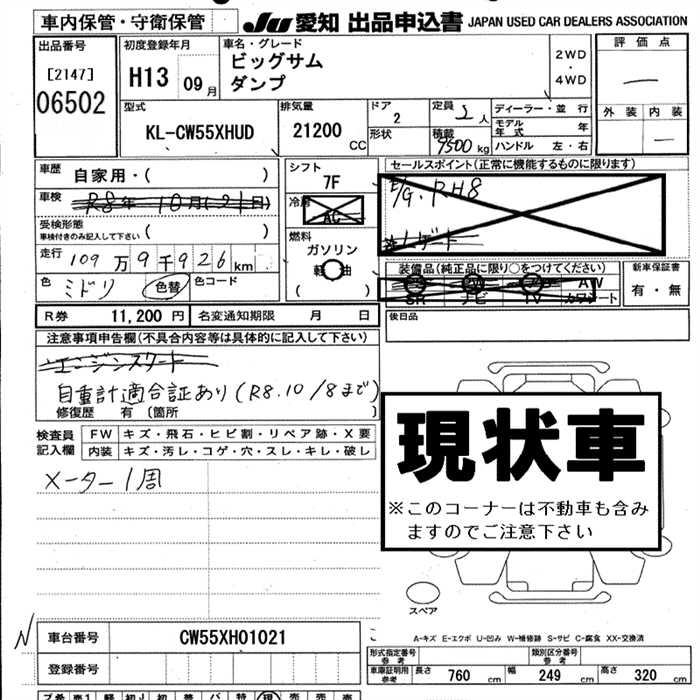 車内保管・守衛保管
JU 愛知 出品申込書 JAPAN USED CAR DEALERS ASSOCIATION
出品番号
[2147]
06502
初度登録年月
H13 09月
車名・グレード
ビッグサム
ダンプ
2WD
・
4WD
評価点
外装 内装
型式
KL-CW55XHUD
排気量
21200 CC
ドア
2
形状
定員
人
積載
9500 kg
ディーラー・並行
モデル年式 年
ハンドル 左・右
車歴 自家用・( )
車検 R8年 10月(21日)
受検形態
車検付きのみ記入して下さい ( )
走行 109万9千926km
色 ミドリ 色替 色コード
シフト
7F
冷房
AC
燃料
ガソリン
軽油
( )
セールスポイント(正常に機能するものに限ります)
E/G. RH8
装備品(純正品に限り○をつけてください)
SR ナビ TV カワシート
AW
新車保証書
有・無
R券 11,200 円 名変通知期限 月 日
後日品
注意事項申告欄(不具合内容等は具体的に記入して下さい)
エンジンスタート
自重計適合証あり(R8.10/8まで)
修復歴 有 〔箇所 〕
検査員
記入欄
FW キズ・飛石・ヒビ割・リペア跡・X要
内装 キズ・汚レ・コゲ・穴・スレ・キレ・破レ
メーター1周
現状車
※このコーナーは不動車も含み
ますのでご注意下さい
スペア
A-キズ E-エクボ U-凹み W-補修跡 S-サビ C-腐食 XX-交換済
N
車台番号 CW55XH01021
登録番号
形式指定番号
参考
類別区分番号
参考
車庫証明用
参考
長さ 760 cm 幅 249 cm 高さ 320 cm